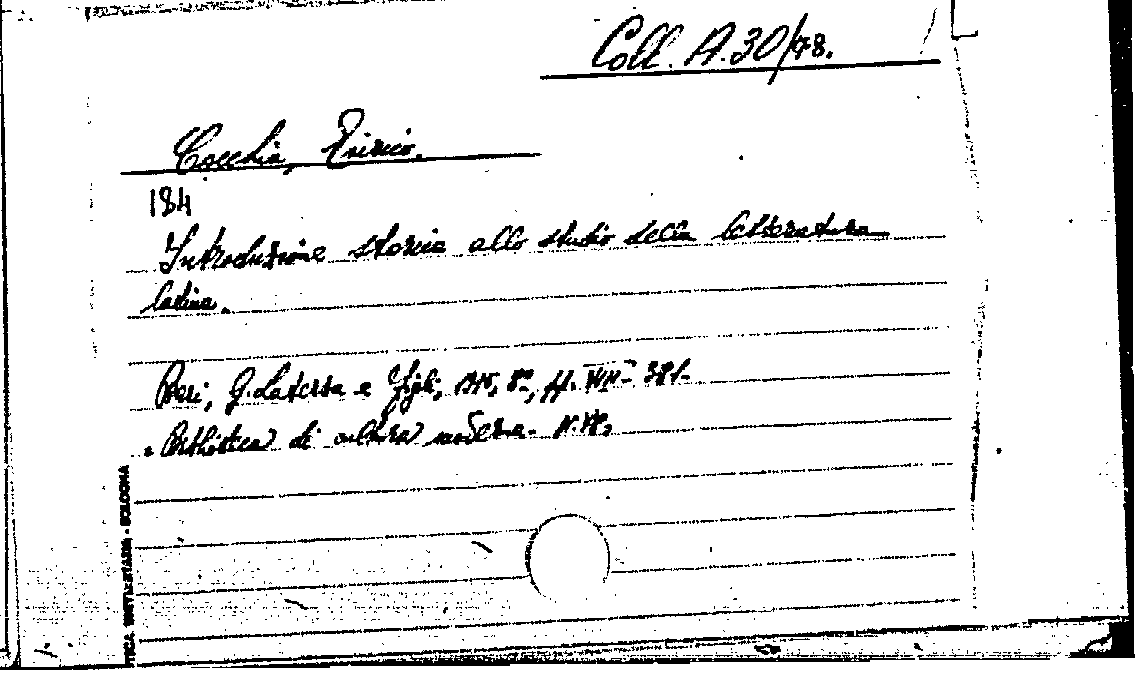 Coll. A.30/78.
Cocchia, Enrico.
184
Introduzione storica allo studio della letteratura
latina.
Bari, G. Laterza e Figli, 1915, 8º, pp.
Biblioteca di cultura moderna - N.
BOLOGNA